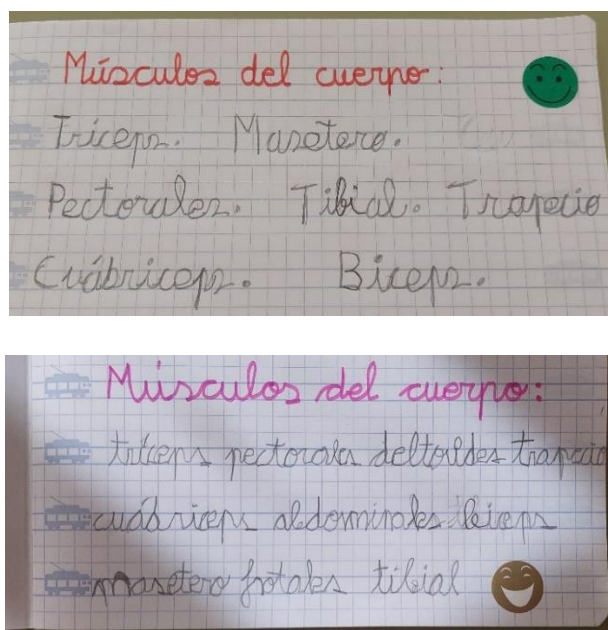 Músculos del cuerpo:
Tríceps. Masetero.
Pectorales. Tibial. Trapecio
Cuábriceps. Biceps.
Músculos del cuerpo:
tríceps pectorales deltoides trapecio
cuábriceps abdominales biceps
masetero frotales tibial